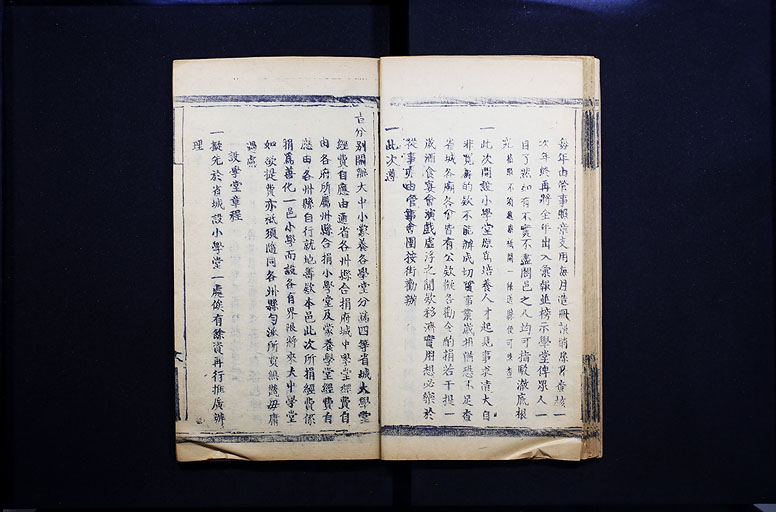 每年由管事照章支用每月造冊報銷原身查核一
次年終再將全年出入彙報並榜示學堂俾眾人一
目了然如有不實不盡闔邑之人均可指駁澈底根
究
一此次開設小學堂原為培養人才起見事業浩大自
非寬籌的款不能辦成切實事業誠相惜恐不足查
省城各廟各會皆有公款擬各勸令酌捐若干提一
歲酒食宴會演戲虛浮之閒款移濟實用想必樂於
從事亦由管事會團按街勸辦
一此次遵
旨分別開辦大中小蒙養各學堂分為四等省城大學堂
經費自應由通省各州縣合捐府城中學堂經費自
由各府所屬州縣合捐小學堂及蒙養學堂經費自
應由各州縣自行就地籌款本邑此次所捐經費係
捐為善化一邑小學而設各有界限將來大中學堂
如欲提費亦祗須隨同各州縣勻派所貲無幾毋庸
過慮
設學堂章程
一擬先於省城設小學堂一處俟有餘貲再行推廣辦
理